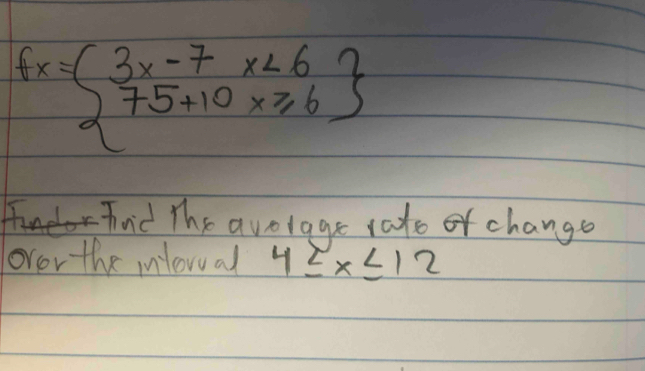 fx = { 3x - 7 x < 6 }
75 + 10 x ≥ 6
Find the average rate of change
over the interval 4 ≤ x ≤ 12